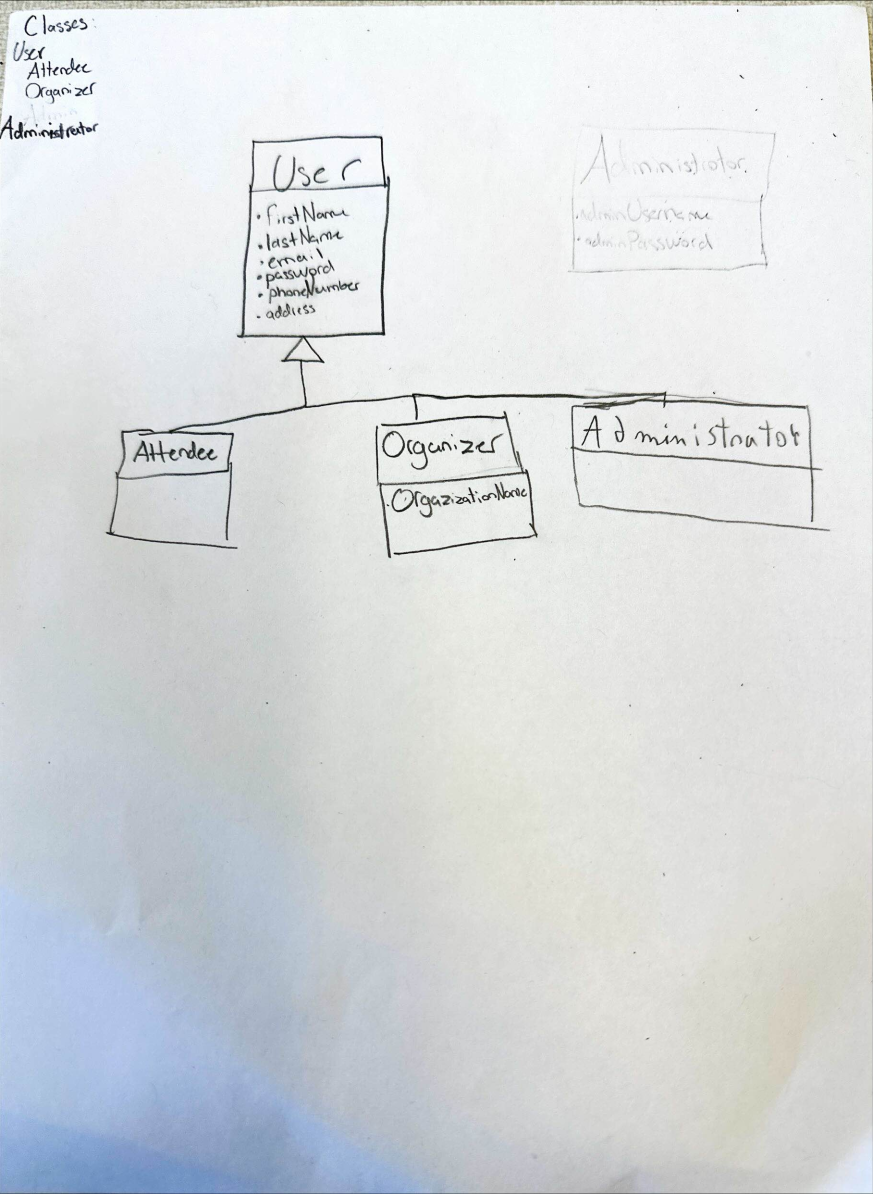 Classes:
User
Attendee
Organizer
Admin
Administrator
User
• firstName
• lastName
• email
• password
• phoneNumber
• address
Administrator
• adminUsername
• adminPassword
Attendee
Organizer
• OrgazizationName
Administrator